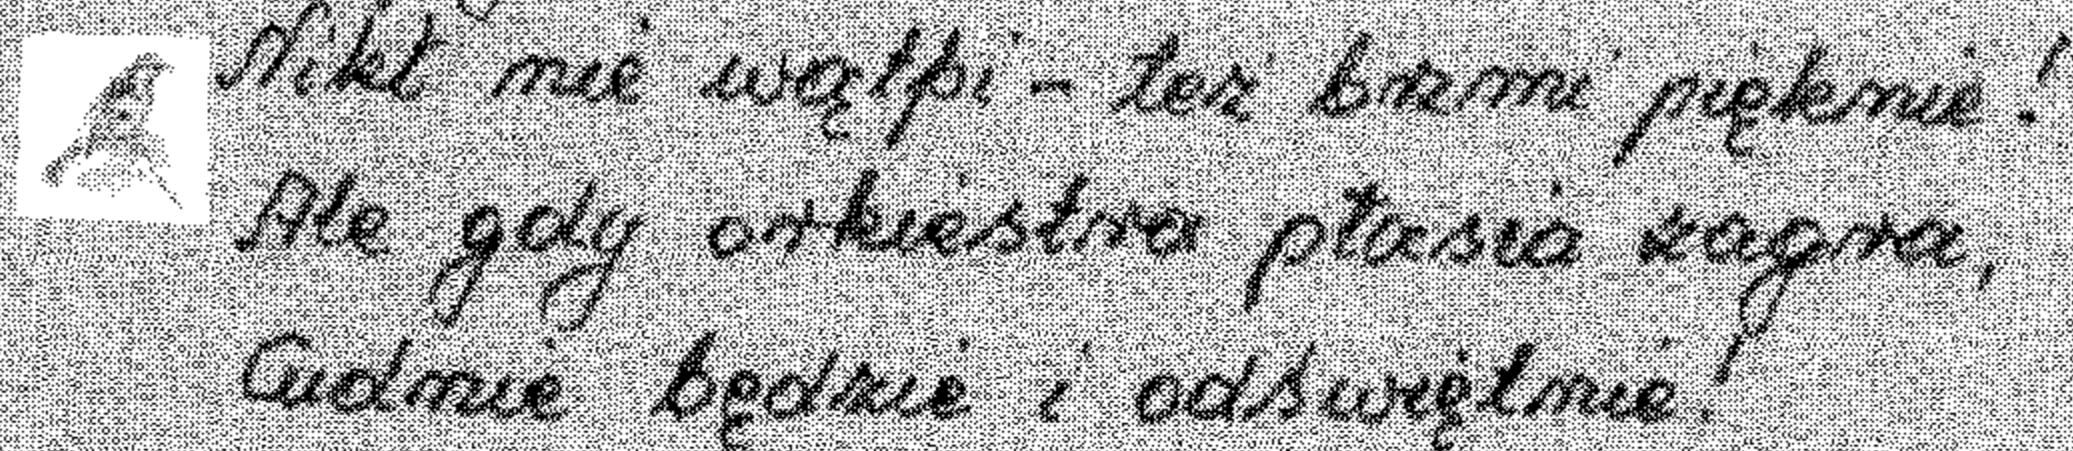 Nikt nie wątpi - też brzmi pięknie!
Ale gdy orkiestra ptasia zagra,
Cudnie będzie i odświętnie!